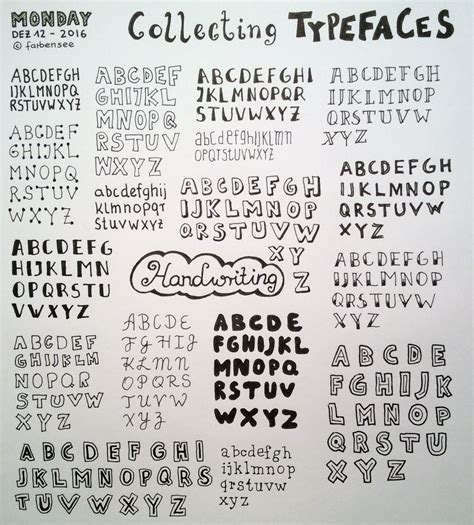 MONDAY
DEZ 12 - 2016
© farbensee
Collecting TYPEFACES
ABCDEFGH
IJKLMNOPQ
RSTUVWXYZ
ABCDEF
GHIJKL
MNOPQ
RSTUV
WXYZ
ABCDEF
GHIJKL
MNOPQR
STUV
WXYZ
abcdefghij
klmnopqr
stuvwxyz
ABCDEFGHI
JKLMNOPQ
RSTUVWXYZ
abcdefghijklmn
opqrstuvwxyz
ABCDEFGH
IJKLMNOP
QRSTUVW
XYZ
ABCDEFGH
IJKLMNOP
QRSTUVW
XY
Z
ABCDEFGH
IJKLMNOP
QRSTUVW
XYZ
ABCDEFG
HIJKLMN
OPQRSTU
VWXYZ
Handwriting
ABCDEFGH
IJKLMNOP
QRSTUVW
XYZ
ABCDEF
GHIJKLM
NOPQR
STUVW
XYZ
ABCDE
FGHIJ
KLMN
OPQRS
TUVW
XYZ
ABCDE
FGHIJKL
MNOPQ
RSTUV
WXYZ
ABCDE
FGHIJK
LMNOP
QRSTU
VWXYZ
ABCDEFGHI
JKLMNOPQRS
TUVWXYZ
abcdefgh
ijklmnop
qrstuvw
xyz